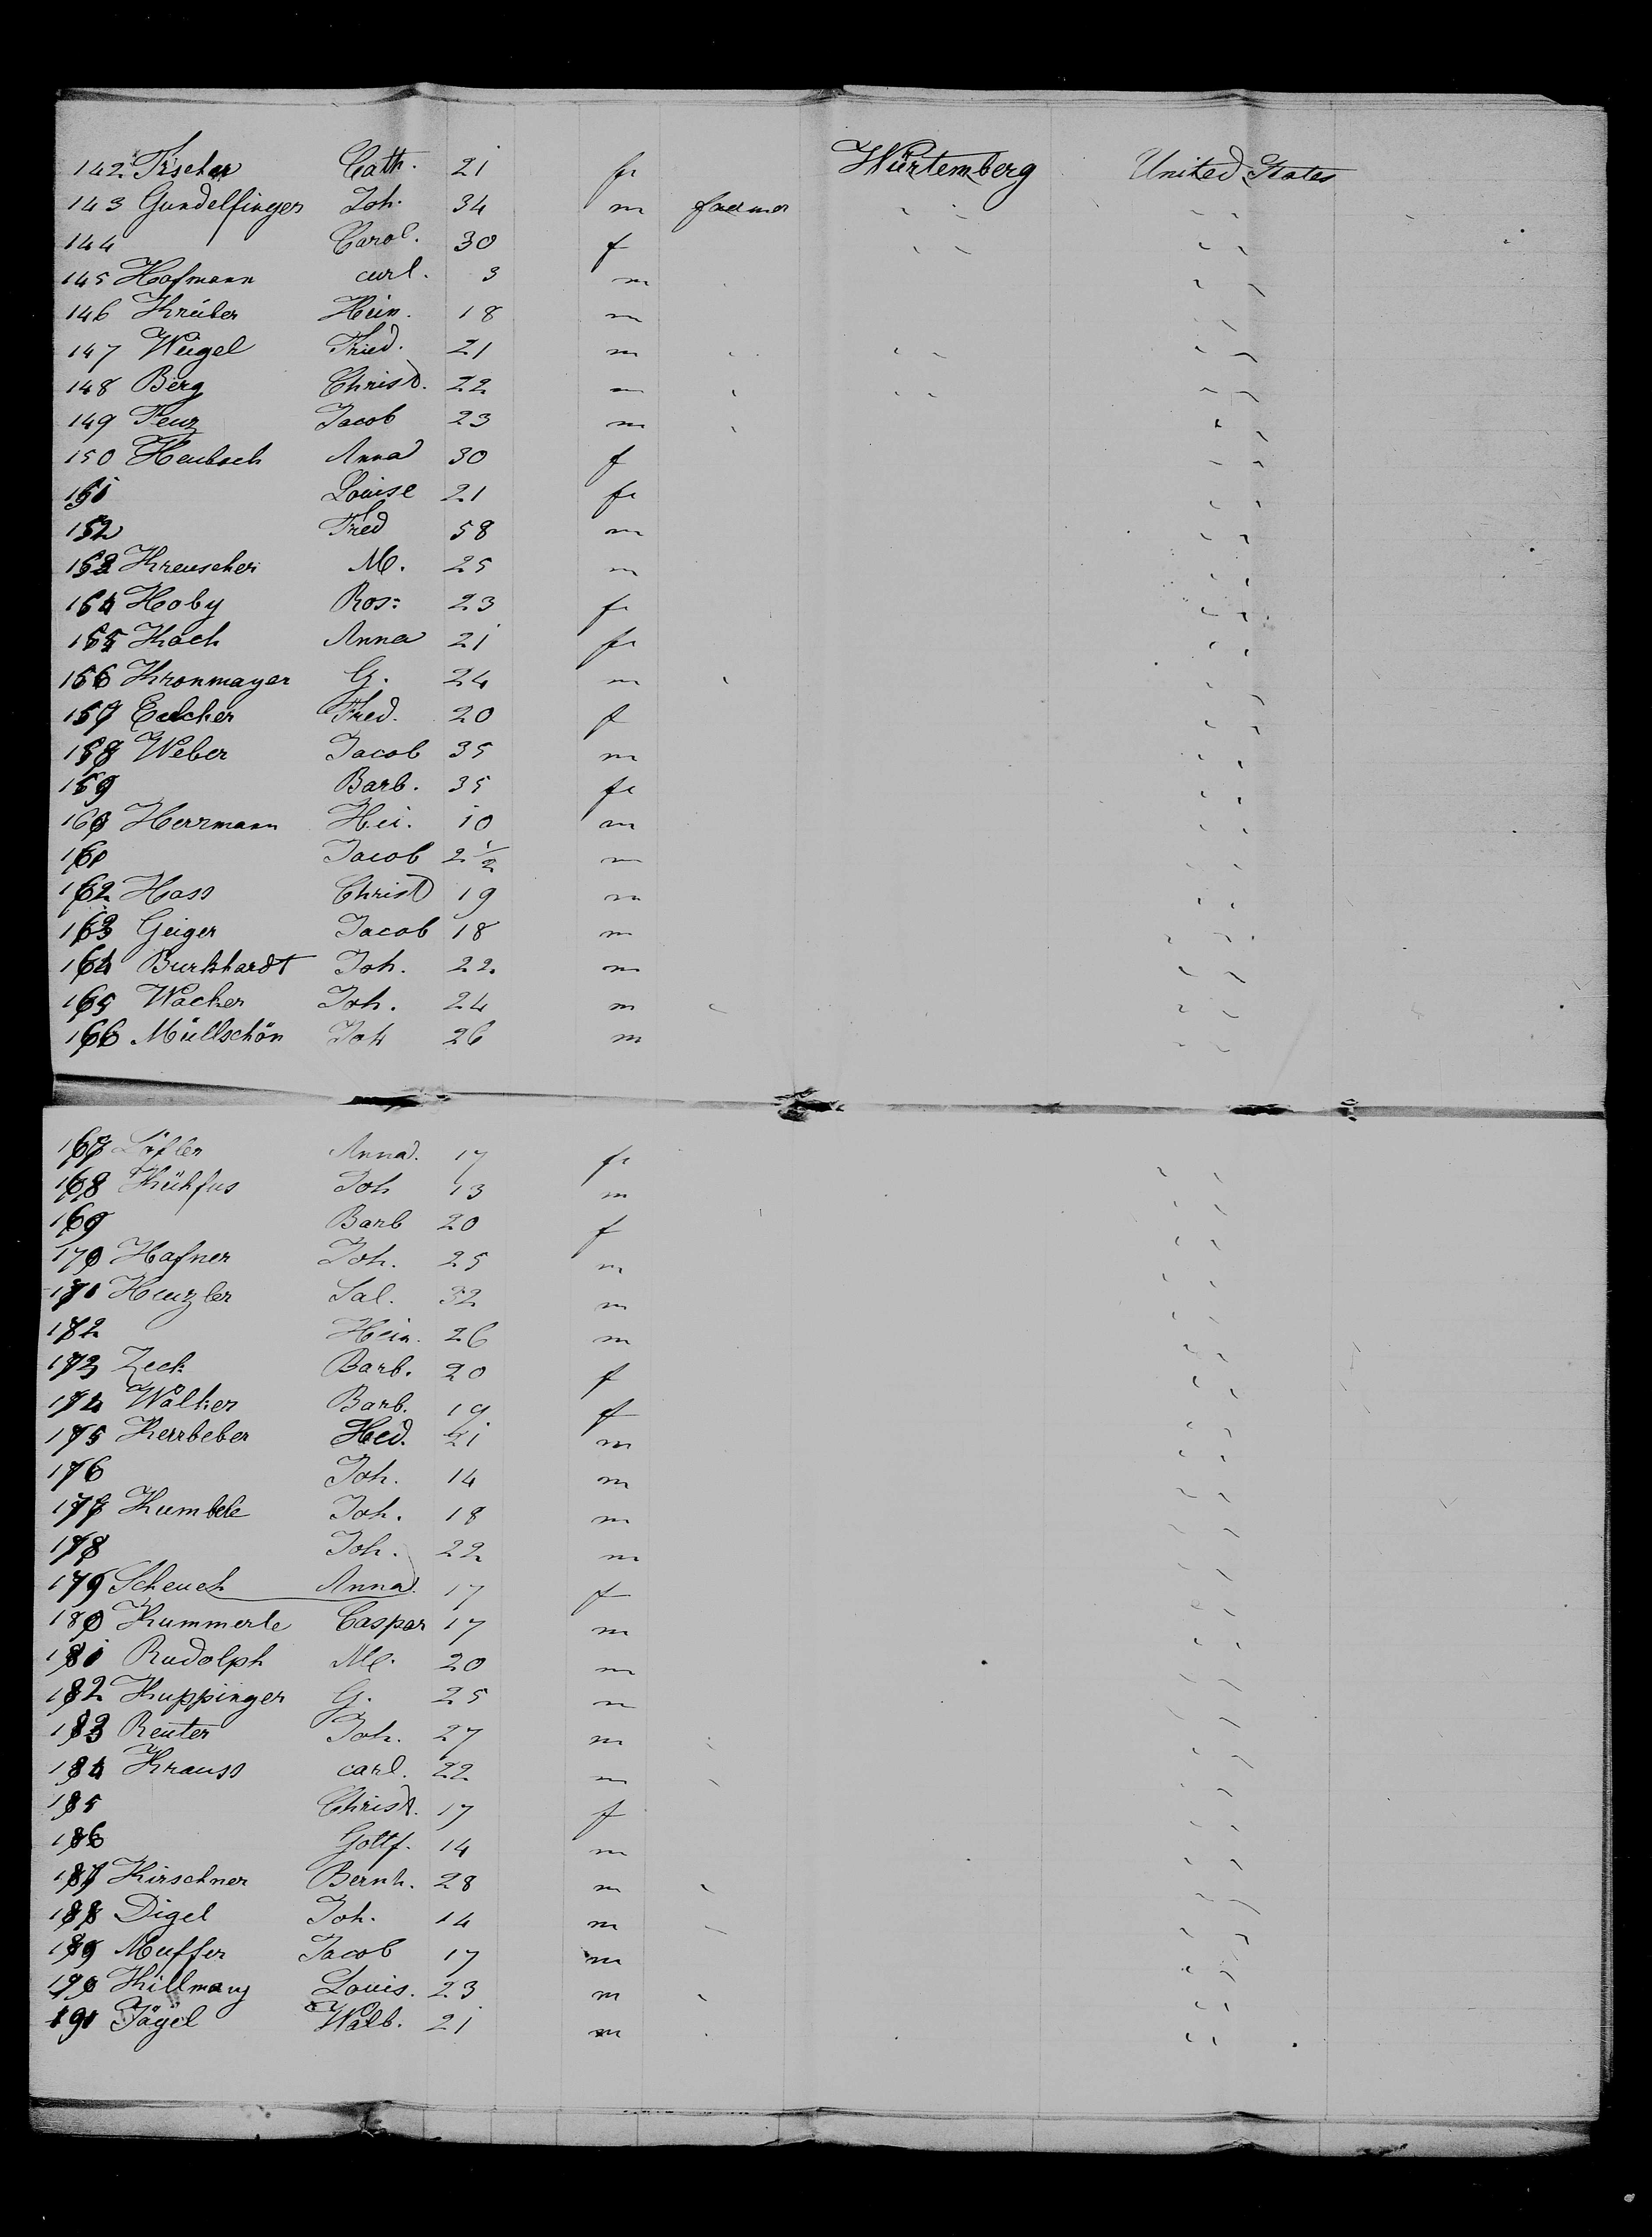 142 Fischer Cath. 21 fe Würtemberg United States
143 Gundelfinger Joh. 34 m farmer " "
144 Carol. 30 f " "
145 Hofmann carl. 3 m " "
146 Hein. 18 m " "
147 Weigel Fried. 21 m " " "
148 Berg Christ. 22 m " " "
149 Jacob 23 m " "
150 Heubach Anna 30 f " "
151 Louise 21 fe " "
152 Fred 58 m " "
153 Kreuscher M. 25 m " "
154 Hoby Ros: 23 fe " "
155 Koch Anna 21 fe " "
156 Kronmayer G. 24 m " "
157 Fred. 20 f " "
158 Weber Jacob 35 m " "
159 Barb. 35 fe " "
160 Herrmann Hei. 10 m " "
161 Jacob 2 1/2 m " "
162 Hass Christ 19 m " "
163 Geiger Jacob 18 m " "
164 Burkhardt Joh. 22 m " "
165 Wacker Joh. 24 m " "
166 Müllschön Joh 26 m " "
167 Löfler Anna. 17 fe " "
168 Kühfus Joh 13 m " "
169 Barb 20 f " "
170 Hafner Joh. 25 m " "
171 Henzler Sal. 32 m " "
172 Hein. 26 m " "
173 Zeck Barb. 20 f " "
174 Walker Barb. 19 f " "
175 Kerrbeber 21 m " "
176 Joh. 14 m " "
177 Joh. 18 m " "
178 Joh. 22 m " "
179 Scheuch Anna. 17 f " "
180 Kummerle Caspar 17 m " "
181 Rudolph M. 20 m " "
182 Kuppinger G. 25 m " "
183 Reuter Joh. 27 m " "
184 Krauss carl. 22 m " "
185 Christ. 17 f " "
186 Gottf. 14 m " "
187 Kirschner Bernh. 28 m " "
188 Digel Joh. 14 m " "
189 Muffer Jacob 17 m " "
190 Louis. 23 m " "
191 Walb. 21 m " "